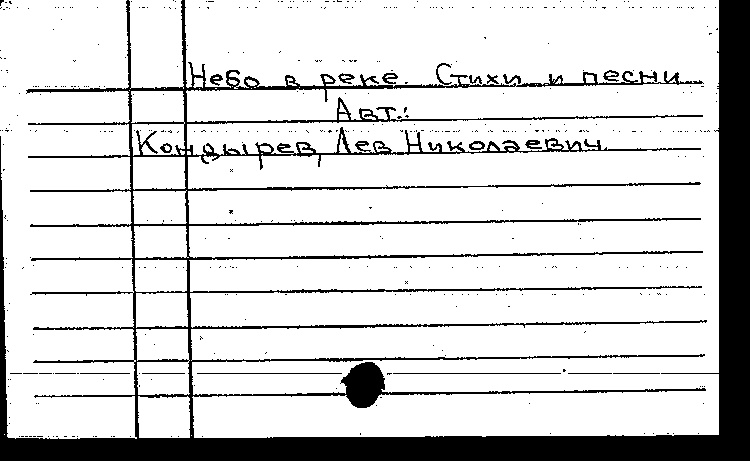 Небо в реке. Стихи и песни
Авт.:
Кондырев, Лев Николаевич.